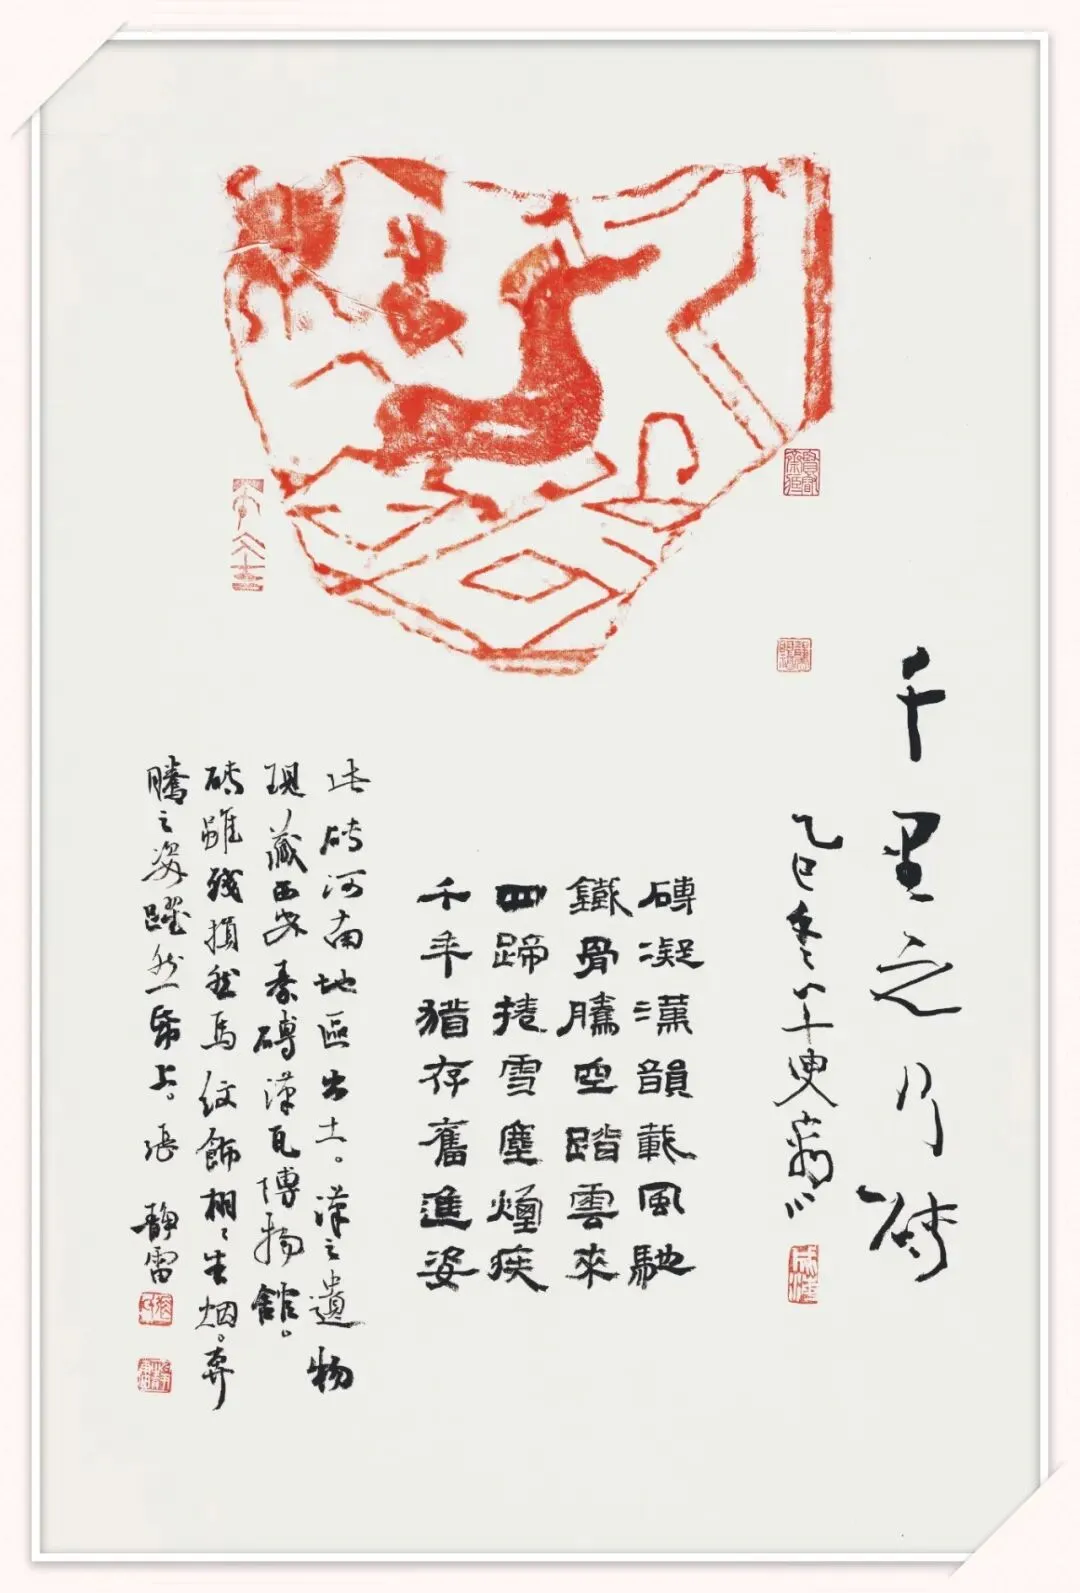 千里之行
乙巳冬
磚凝漢韻載風馳
鐵骨騰空踏雲來
四蹄捲雪塵煙疾
千年猶存奮進姿
此砖河南地區出土。漢之遺物
現藏西安秦磚漢瓦博物館。
砖雖殘損然馬紋飾栩栩生烟。奔
騰之姿躍然紙上。張
靜雷